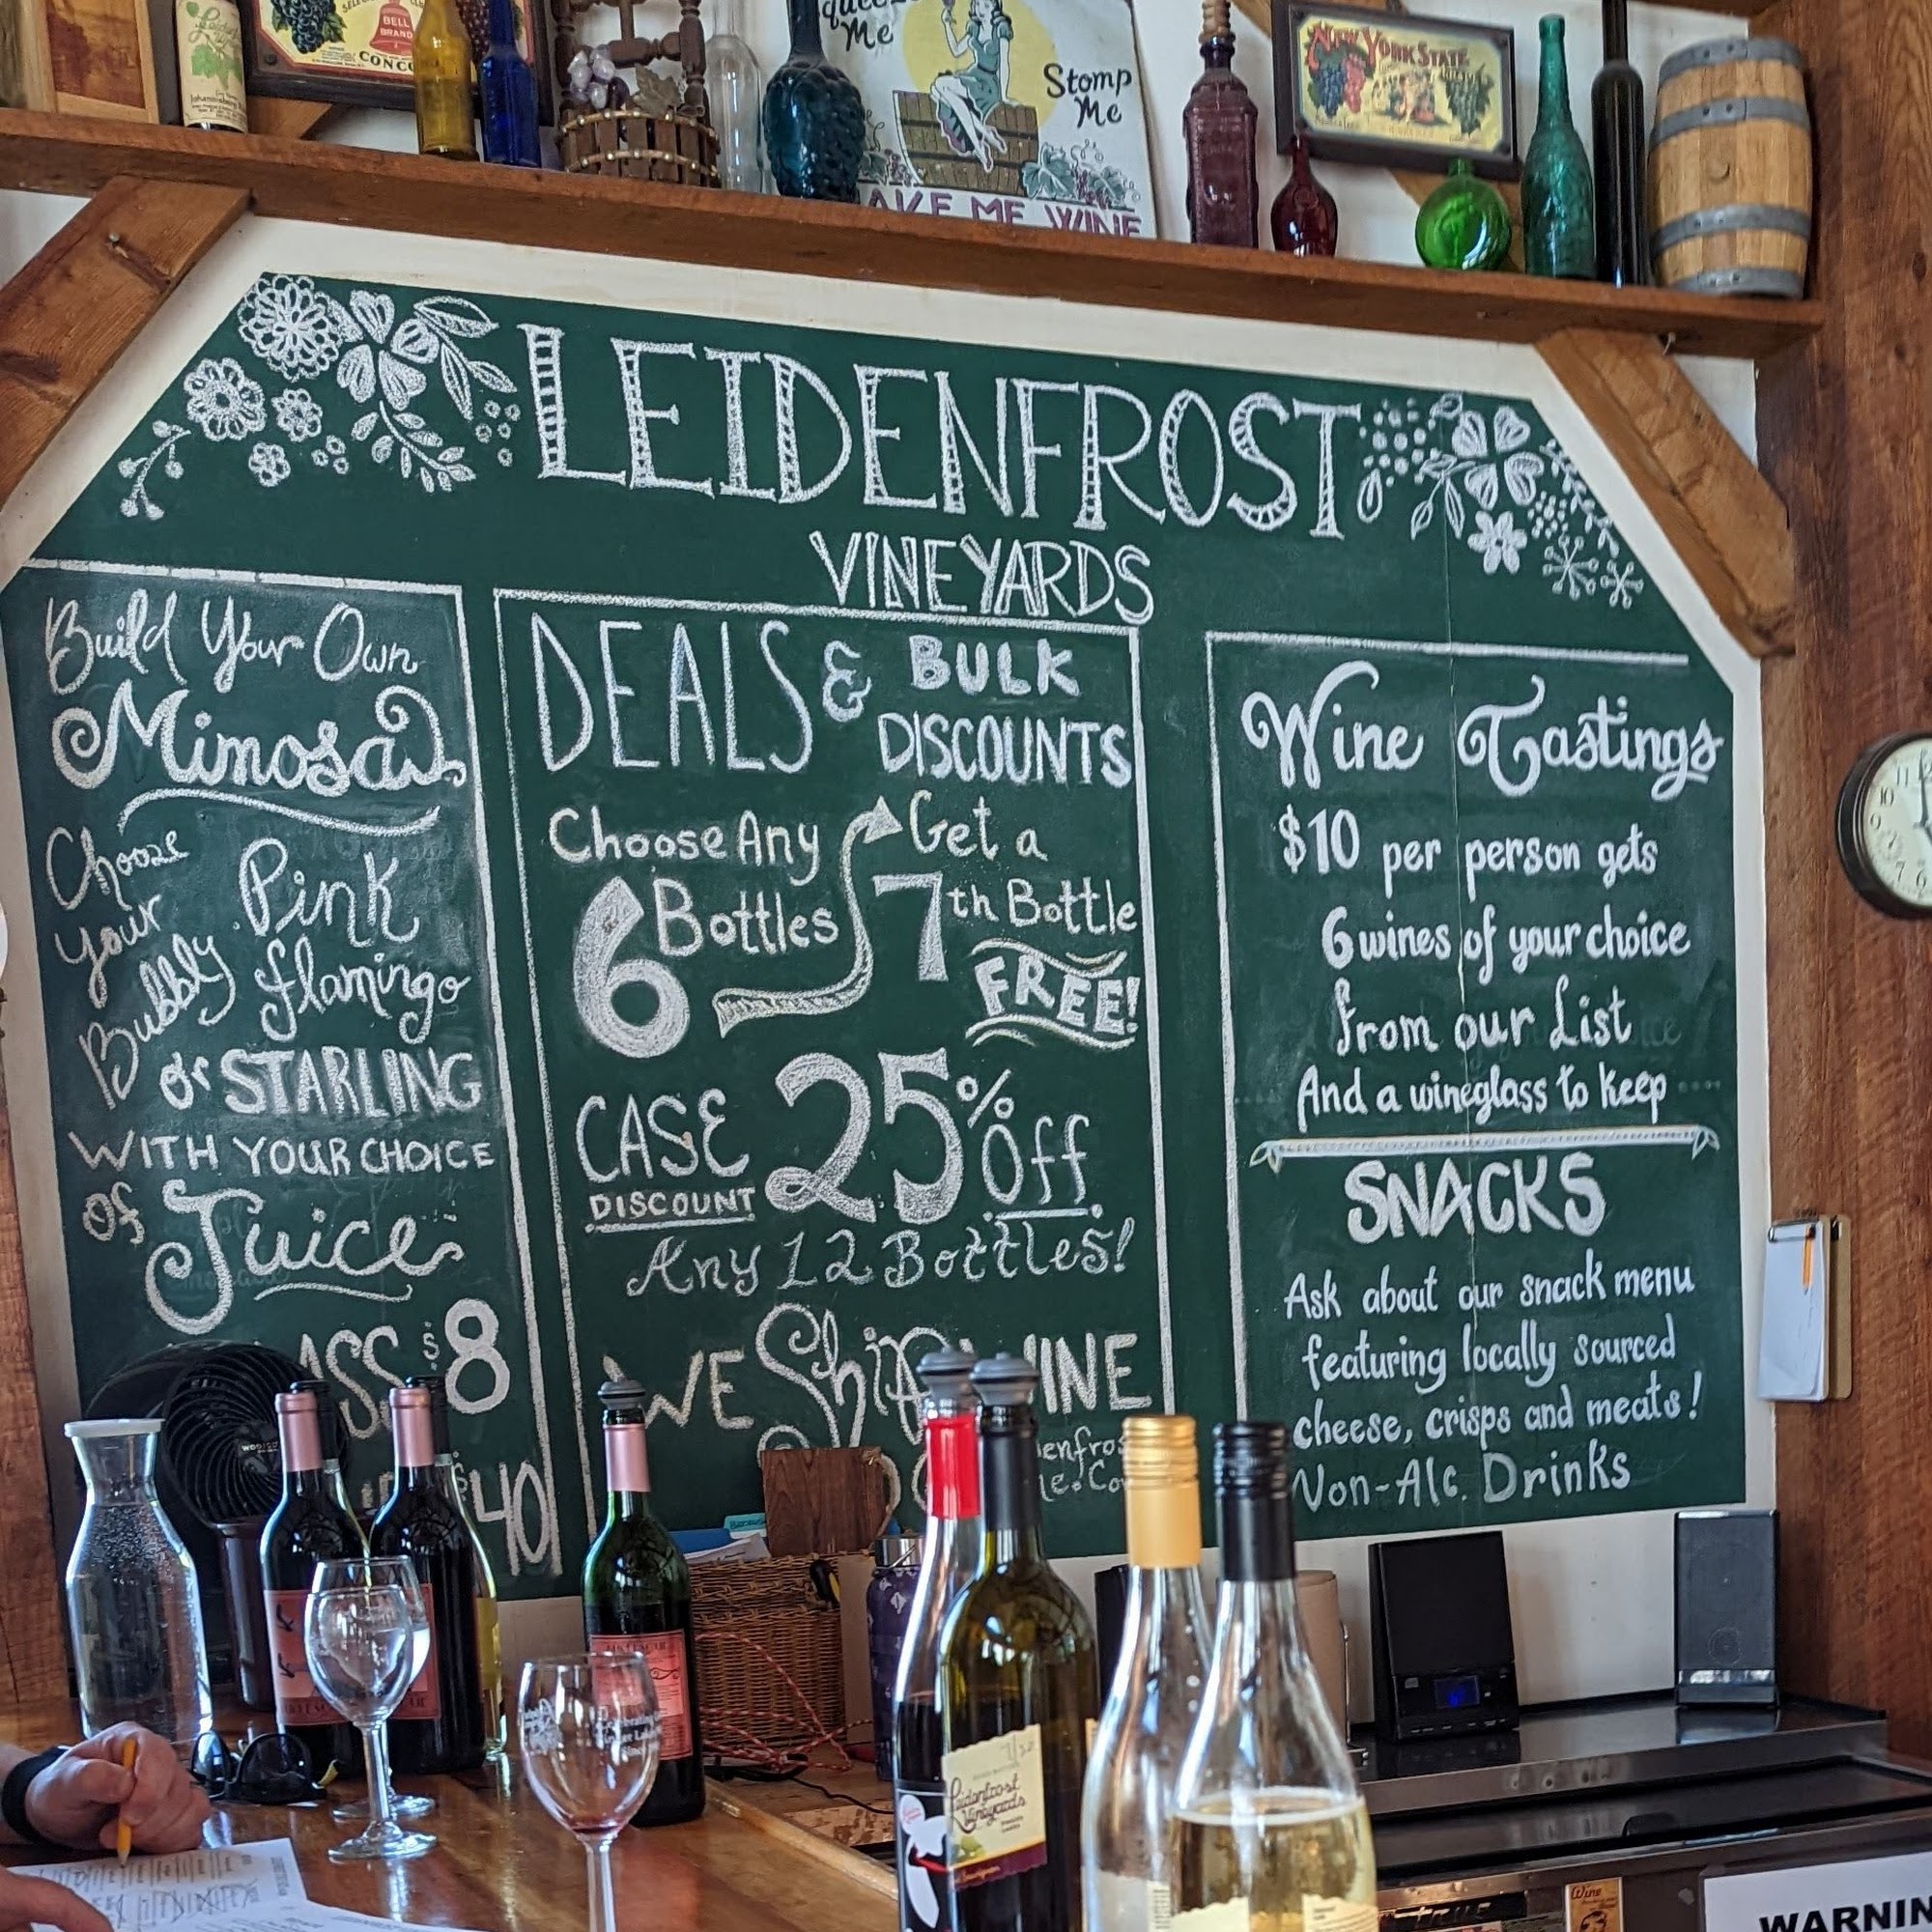 BELL
BRAND
CONCO
Squeeze
Me
Stomp
Me
MAKE ME WINE
NEW YORK STATE
LEIDENFROST
VINEYARDS
Build Your Own
Mimosa
Choose
your
Bubbly
Pink
flamingo
or STARLING
WITH YOUR CHOICE
Of
Juice
ASS $8
$40
DEALS & BULK
DISCOUNTS
Choose Any
6 Bottles
Get a
7th Bottle
FREE!
CASE
DISCOUNT
25% Off
Any 12 Bottles!
WE Ship WINE
enfros
e.Co
Wine Tastings
$10 per person gets
6 wines of your choice
from our List
And a wineglass to keep
SNACKS
Ask about our snack menu
featuring locally sourced
cheese, crisps and meats!
Non-Alc. Drinks
10
11
7
6
Leidenfrost
Vineyards
Wine
WARNIN